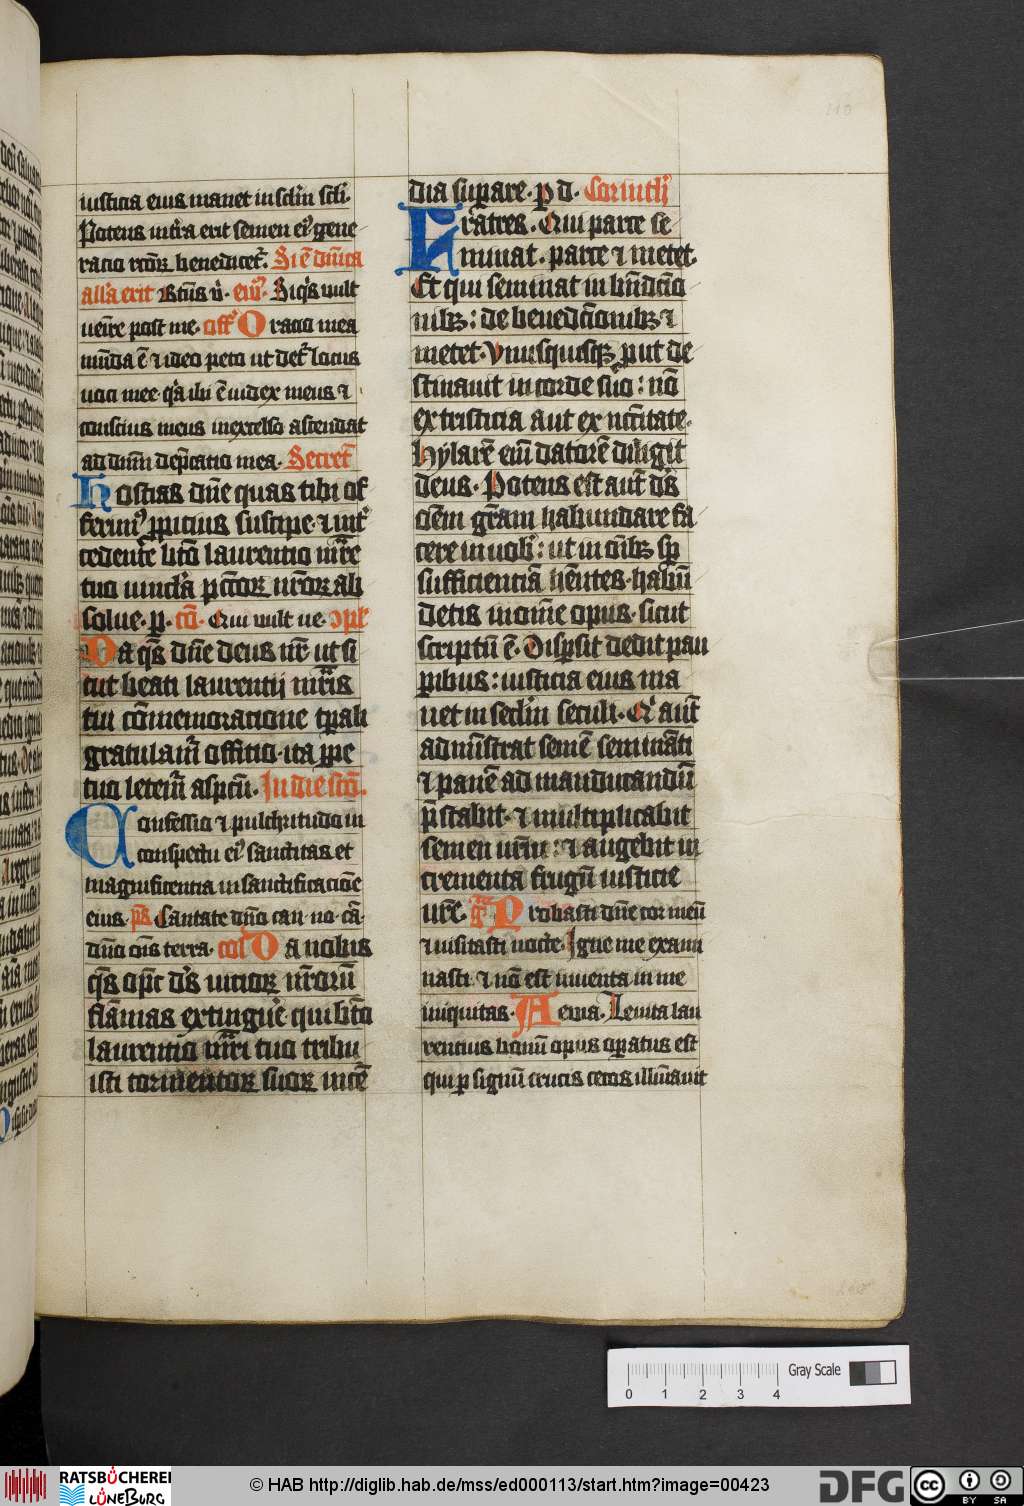 iusticia eius manet in sclm scli.
Potens in tra erit semen eiꝰ gene
racio rctoꝝ benedicet᷑. Si ē dn̄ica
alla erit Btūs v̄. ew̄. Siqͥs uult
uenire post me. off Oracio mea
mūda ē ⁊ ideo peto ut det᷑ locus
uoci mee. qͥa ibi ē iudex meus ⁊
conscius meus in excelso ascendat
ad dnm dep̄catio mea. Secret̄
Hostias dn̄e quas tibi of
ferimꝰ ꝓpicius suscipe. ⁊ int̄
cedente btō laurentio mr̄e
tuo uincla pctoꝝ nr̄oꝝ ab
solue. p. cō. Qui uult ue. ꝯpl
Da qs̄ dn̄e deus nr̄ ut si
cut beati laurentij mr̄is
tui cōmemoratione tꝑali
gratulam̄ offitio. ita ꝑpe
tuo letem̄ aspcū. In die scō.
Confessio ⁊ pulchritudo in
conspectu eiꝰ sanctitas et
magnificentia in sanctificacioē
eius. p̄s Cantate dn̄o can. no. cā.
dn̄o oīs terra. col Da nobis
qs̄ op̄c ds̄ uitioꝝ nr̄orū
flāmas extinguē qui btō
laurentio mr̄i tuo tribu
isti tormentoꝝ suoꝝ incē
dia suꝑare. p d. Corinth᷑
Fratres. Qui parce se
minat. parce ⁊ metet.
Et qui seminat in bn̄dictio
nibꝫ: de benedictionibꝫ ⁊
metet. Vnusquisqꝫ put de
stinauit in corde suo: nō
ex tristicia aut ex nc̄citate.
Hylarē em̄ datorē diligit
deus. Potens est aut̄ ds̄
oēm gr̄am habundare fa
cere in uob᷑: ut in oībꝫ sp̄
sufficientiā hn̄tes. habūn
detis in om̄e opus. sicut
scriptū ē. Dispsit dedit pau
ꝑibus: iusticia eius ma
net in sclm seculi. Qͥ aut̄
admīstrat semē semināti
⁊ panē ad manducandū
p̄stabit. ⁊ multiplicabit
semen ur̄m: ⁊ augebit in
crementa frugū iusticie
ur̄e. gr̄ Probasti dn̄e cor meū
⁊ uisitasti nocte. Igne me exami
nasti. ⁊ nō est inuenta in me
iniquitas. Aeuia. Leuita lau
rentius bonū opus oꝑatus est
qui ꝑ signū crucis cecos illūinauit
Gray Scale
0 1 2 3 4
RATSBÜCHEREI
LÜNEBURG
© HAB http://diglib.hab.de/mss/ed000113/start.htm?image=00423
DFG
cc
BY SA